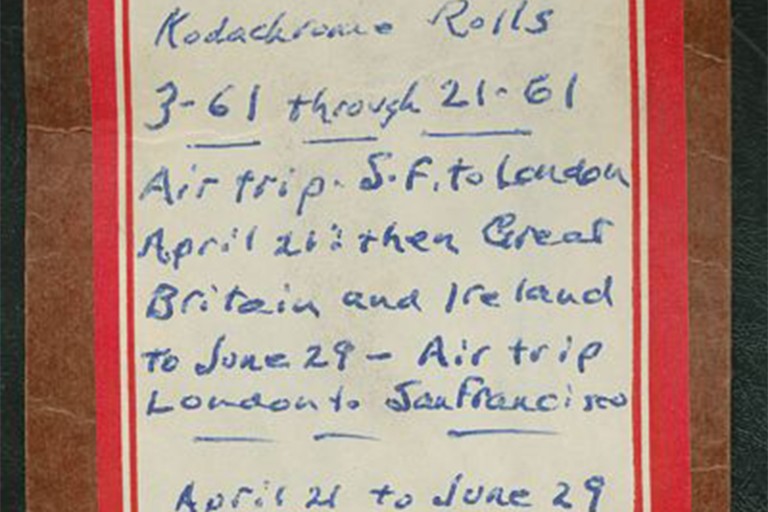 Kodachrome Rolls
3-61 through 21-61
Air trip. S.F. to London
April 21: then Great
Britain and Ireland
to June 29 - Air trip
London to San Francisco
April 21 to June 29